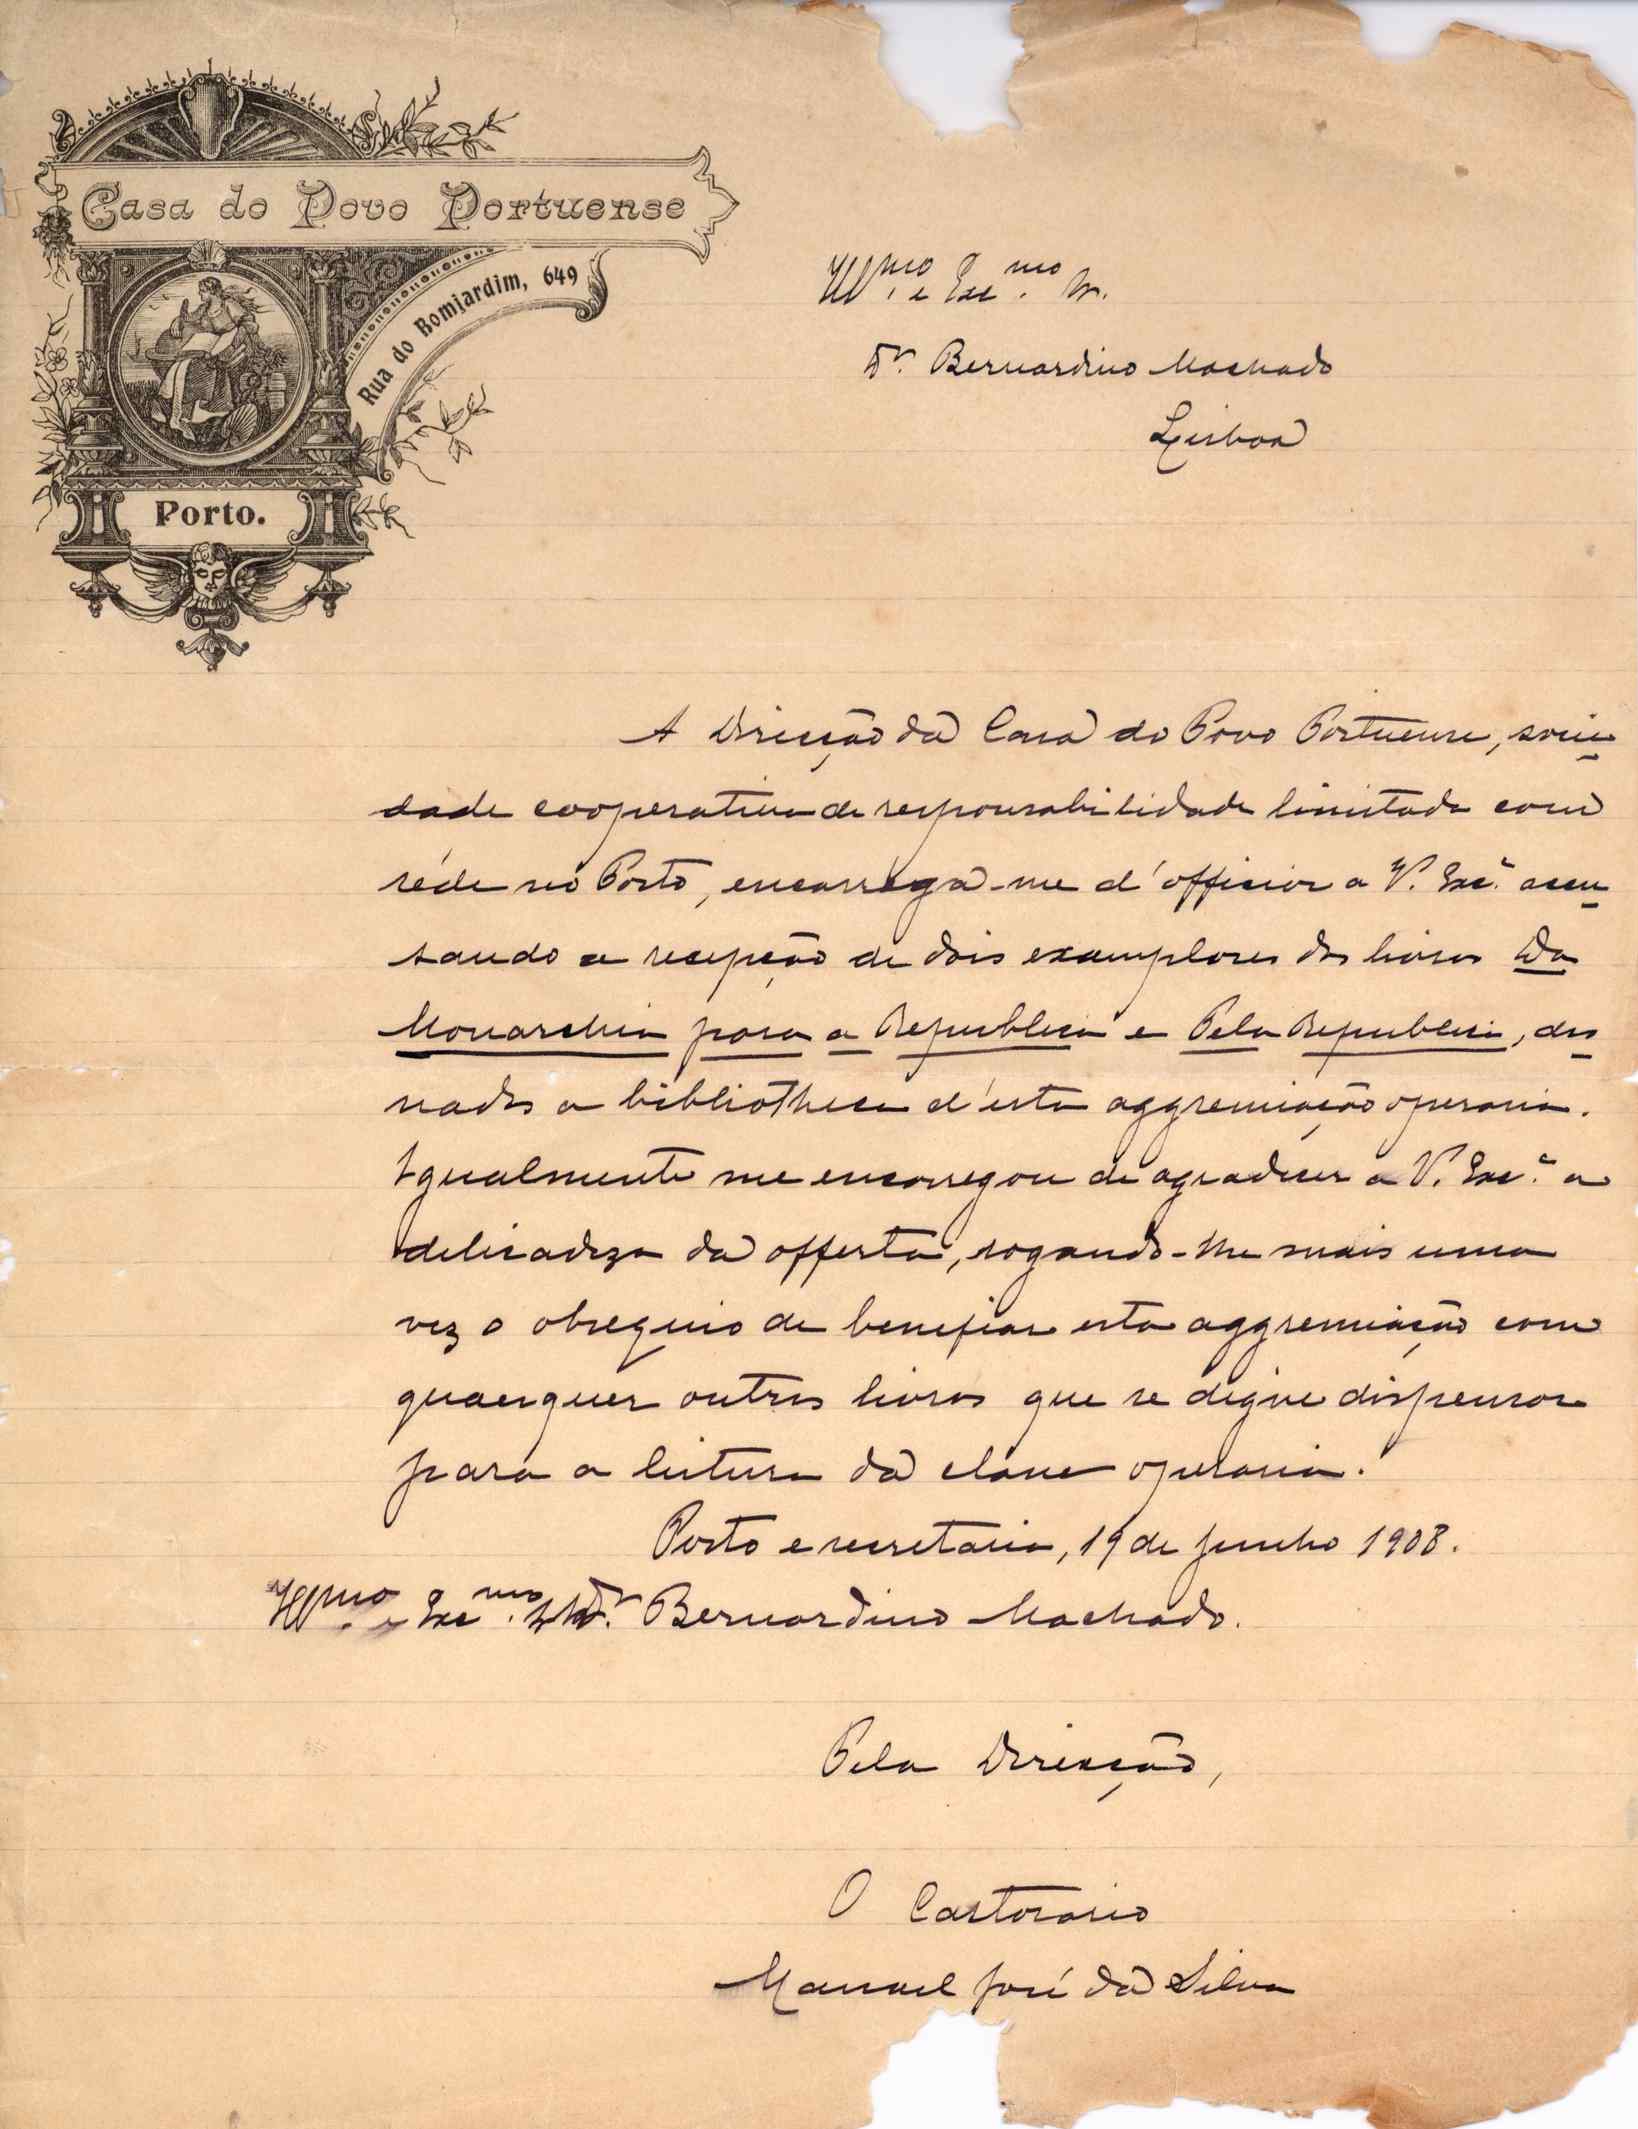 Casa do Povo Portuense
Rua do Bomjardim, 649
Porto.
Ill.mo e Exc.mo Sr.
Dr. Bernardino Machado
Lisboa
A Direcção da Casa do Povo Portuense, socie
dade cooperativa de responsabilidade limitada com
séde no Porto, encarrega-me d'officiar a V. Exc.ª accu
sando a recepção de dois exemplares dos livros Da
Monarchia para a Republica e Pela Republica, desti
nados a bibliotheca d'esta aggremiação operaria.
Igualmente me encarregou de agradecer a V. Exc.ª a
delicadeza da offerta, rogando-lhe mais uma
vez o obsequio de benefiar esta aggremiação com
quaesquer outros livros que se digne dispensar
para a leitura da classe operaria.
Porto e secretaria, 19 de Junho 1908.
Ill.mo e Exc.mo Sr. Dr. Bernardino Machado.
Pela Direcção,
O Cartorario
Manuel José da Silva